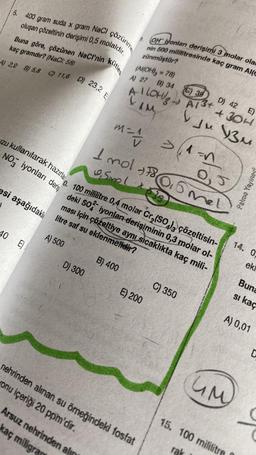 5. 400 gram suda x gram NaCl çözünm
oluşan çözeltinin derişimi 0,5 molaldir.
Buna göre, çözünen NaCl'nin kütle
kaç gramdır? (NaCl: 58)
A) 2,9 B) 5,8 C) 11,6 D) 23,2 E
OH⁻ iyonları derişimi 3 molar ola
nin 500 mililitresinde kaç gram Al(
zünmüştür?
(Al(OH)₃ = 78)
A) 27 B) 34 C) 39 D) 42 E)
Al(OH)₃ → Al³⁺ + 3OH
1M 1M 3M
m=1/V
1 mol 78
0,5 mol 39
0,5 mol
kullanılarak hazırla
NO₃⁻ iyonları deri
esi aşağıdaki
40 E)
100 mililitre 0,4 molar Cr₂(SO₄)₃ çözeltisin-
deki SO₄²⁻ iyonları derişiminin 0,3 molar ol-
ması için çözeltiye aynı sıcaklıkta kaç mili-
litre saf su eklenmelidir?
A) 500 B) 400 C) 350
D) 300 E) 200
nehrinden alınan su örneğindeki fosfat
onu içeriği 20 ppm'dir.
Arsuz nehrinden alın
kaç miligram
Palme Yayınevi
14. 0
eki
Buna
sı kaç
A) 0,01
D
4M
15. 100 mililitre
rak